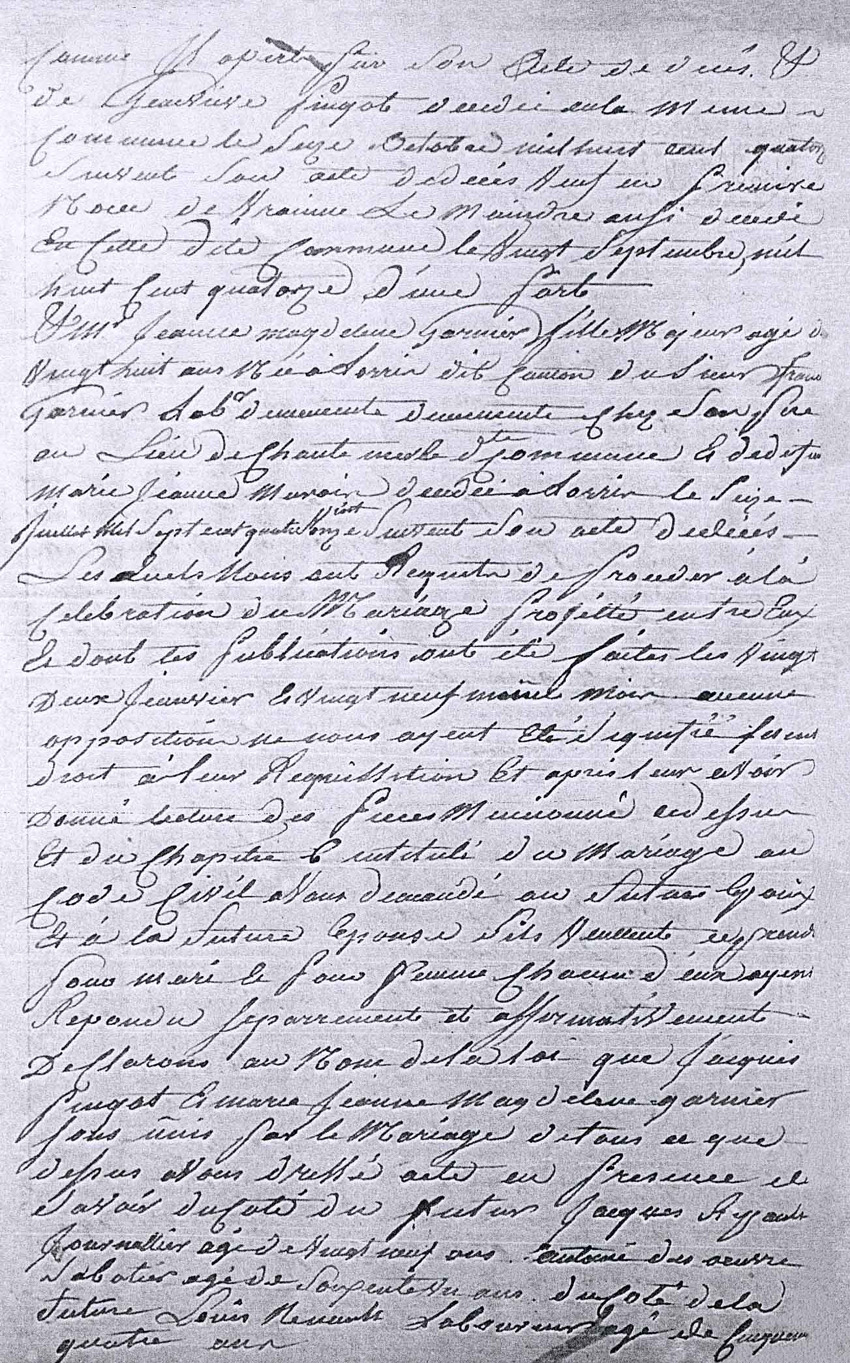 Comme Il apert sur son Acte de décès. &
de Genevieve Pingot decedée en la meme
Commune le Seize Octobre mil huit cent quatorz
Suivent Son acte de décès Veuf en premiere
Noce de Le Moindre aussi decedé
En Cette dite Commune le Vingt Septembre mil
huit Cent quatorze d'une part
& Mie Jeanne magdelene Garnier fille Majeur agé de
Vingt huit ans Née à Lorris dit Canton du Sieur Franc
Garnier Labr demeurente Chez Son Pere
au Lieu de Chante merle dte Commune & de
marie Jeanne decedée a Lorris le Seize
Juillet Mil Sept cent quatre Vingt onze Suivent Son acte de décés
Les quels Nous ont Requis de proceder à la
Celébration du Mariage projétté entre Eux
& dont les publications ont été faites les Vingt
Deux Jeanvier & Vingt neuf même mois aucune
opposition ne nous ayent Eté Signifié fesent
droit à leur Requisition Et après leur avoir
Donné lecture des pieces Mencionné cidessus
Et du Chapitre 6 intitulé du Mariage au
Code Civil avons demandé au futur Epoux
Et à la future Epouse Sils Veullente se prendre
pour mari & pour femme Chacun d'eux ayent
Repondu separrement et affirmativement
Declarons au Nom de la loi que Jacques
Pingot & marie Jeanne Magdelene garnier
sons unis par le Mariage de tous ce que
dessus avons dressé acte en presence de
Savoir du Coté du futur Jacques
Journallier agé de Vingt neuf ans. antoine des oeuvre
Sabotier agé de Soixente un ans. du Coté de la
future Louis Renault Laboureur agé de Cinquen
quatre ans